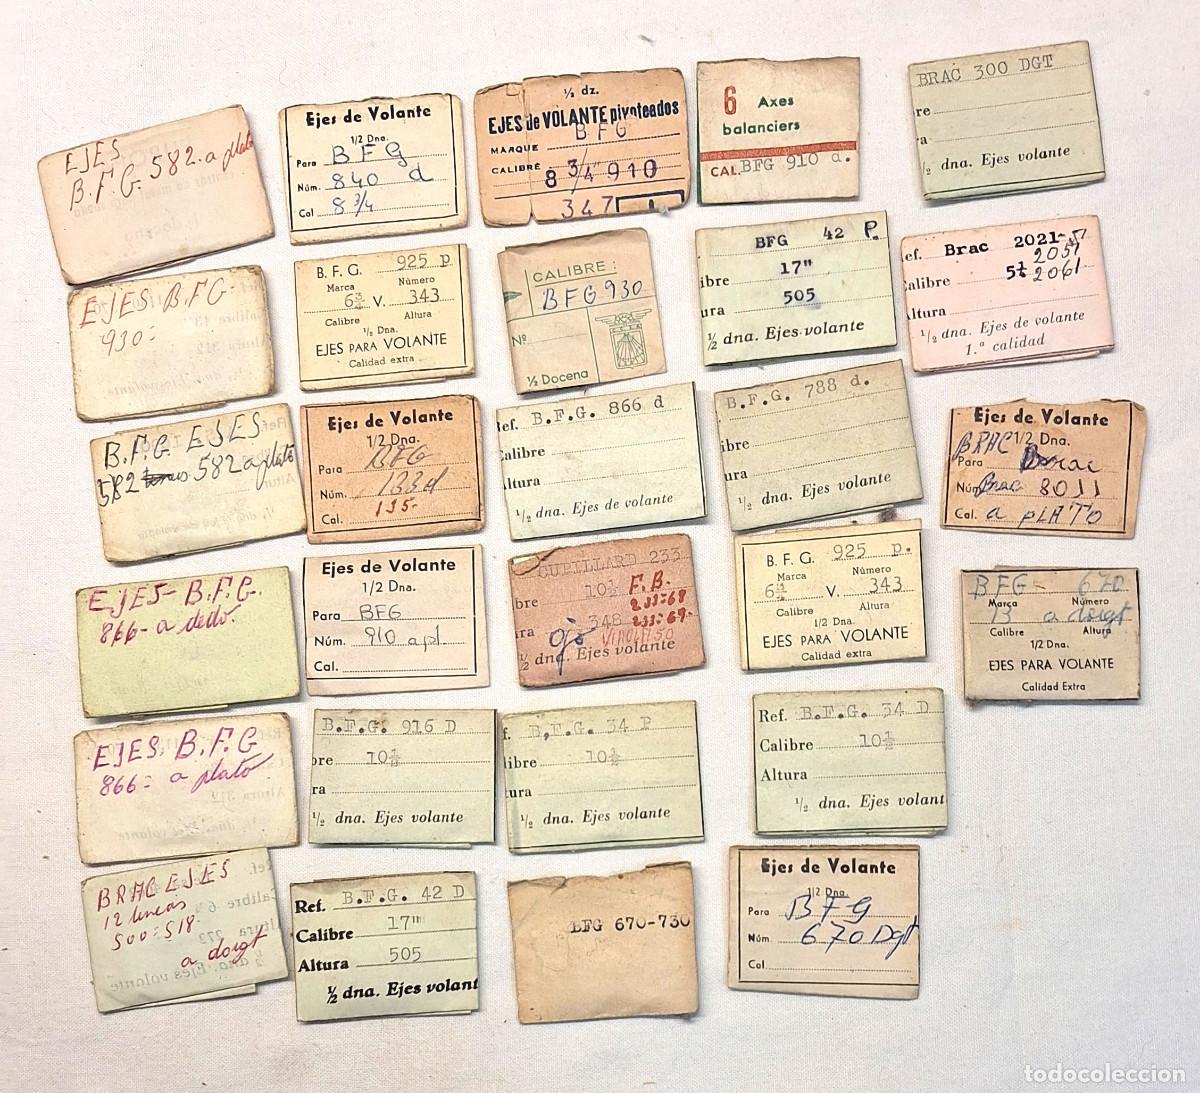 EJES
B.F.G. 582. a plato
Ejes de Volante
1/2 Dna.
Para BFG
Núm. 840 d
Cal 8 3/4
½ dz.
EJES de VOLANTE pivoteados
MARQUE BFG
CALIBRE 8 3/4''' 910
347
6 Axes
balanciers
CAL. BFG 910 d.
BRAC 300 DGT
re
ra
½ dna. Ejes volante
EJES B.F.G-
930=
B. F. G. 925 p
Marca Número
6¾ V. 343
Calibre Altura
½ Dna.
EJES PARA VOLANTE
Calidad extra
CALIBRE:
BFG 930
Nº
½ Docena
BFG 42 P.
ibre 17"
ura 505
½ dna. Ejes volante
ef. Brac 2021-51
2051
alibre 5½ 2061
ltura
½ dna. Ejes de volante
1.ª calidad
B.F.G EJES
582 a plato
Ejes de Volante
1/2 Dna.
Para BFG
Núm. 133d
Cal. 135-
ef. B.F.G. 866 d
alibre
ltura
½ dna. Ejes de volante
B.F.G. 788 d.
ibre
ura
½ dna. Ejes volante
Ejes de Volante
BRAC 1/2 Dna.
Para Brac
Núm Brac 8011
Cal. a PLATO
EJES- B.F.G.
866- a dedo
Ejes de Volante
1/2 Dna.
Para BFG
Núm. 910 a pl.
Cal.
CUPILLARD 233
bre 10½ F.B.
233-68
ra 348 233-69
ojo
½ dna. Ejes volante
B. F. G. 925 p.
Marca Número
6¾ V. 343
Calibre Altura
1/2 Dna.
EJES PARA VOLANTE
Calidad extra
BFG- 670
Marca Número
13 a doigt
Calibre Altura
1/2 Dna.
EJES PARA VOLANTE
Calidad Extra
EJES. B.F.G
866= a plato
B.F.G. 916 D
bre 10½
ra
½ dna. Ejes volante
f. B.F.G. 34 P
libre 10½
ura
½ dna. Ejes volante
Ref. B.F.G. 34 D
Calibre 10½
Altura
½ dna. Ejes volant
BRAC EJES
12 lineas
500=518-
a doigt
Ref. B.F.G. 42 D
Calibre 17"
Altura 505
½ dna. Ejes volant
BFG 670-730
Ejes de Volante
1/2 Dna.
Para BFG
Núm. 670 Dgt
Cal
todocoleccion